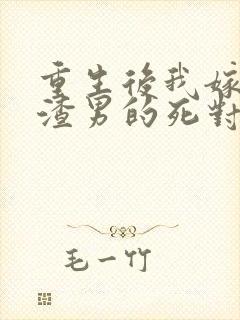 重生後我嫁
渣男的死對
毛一竹